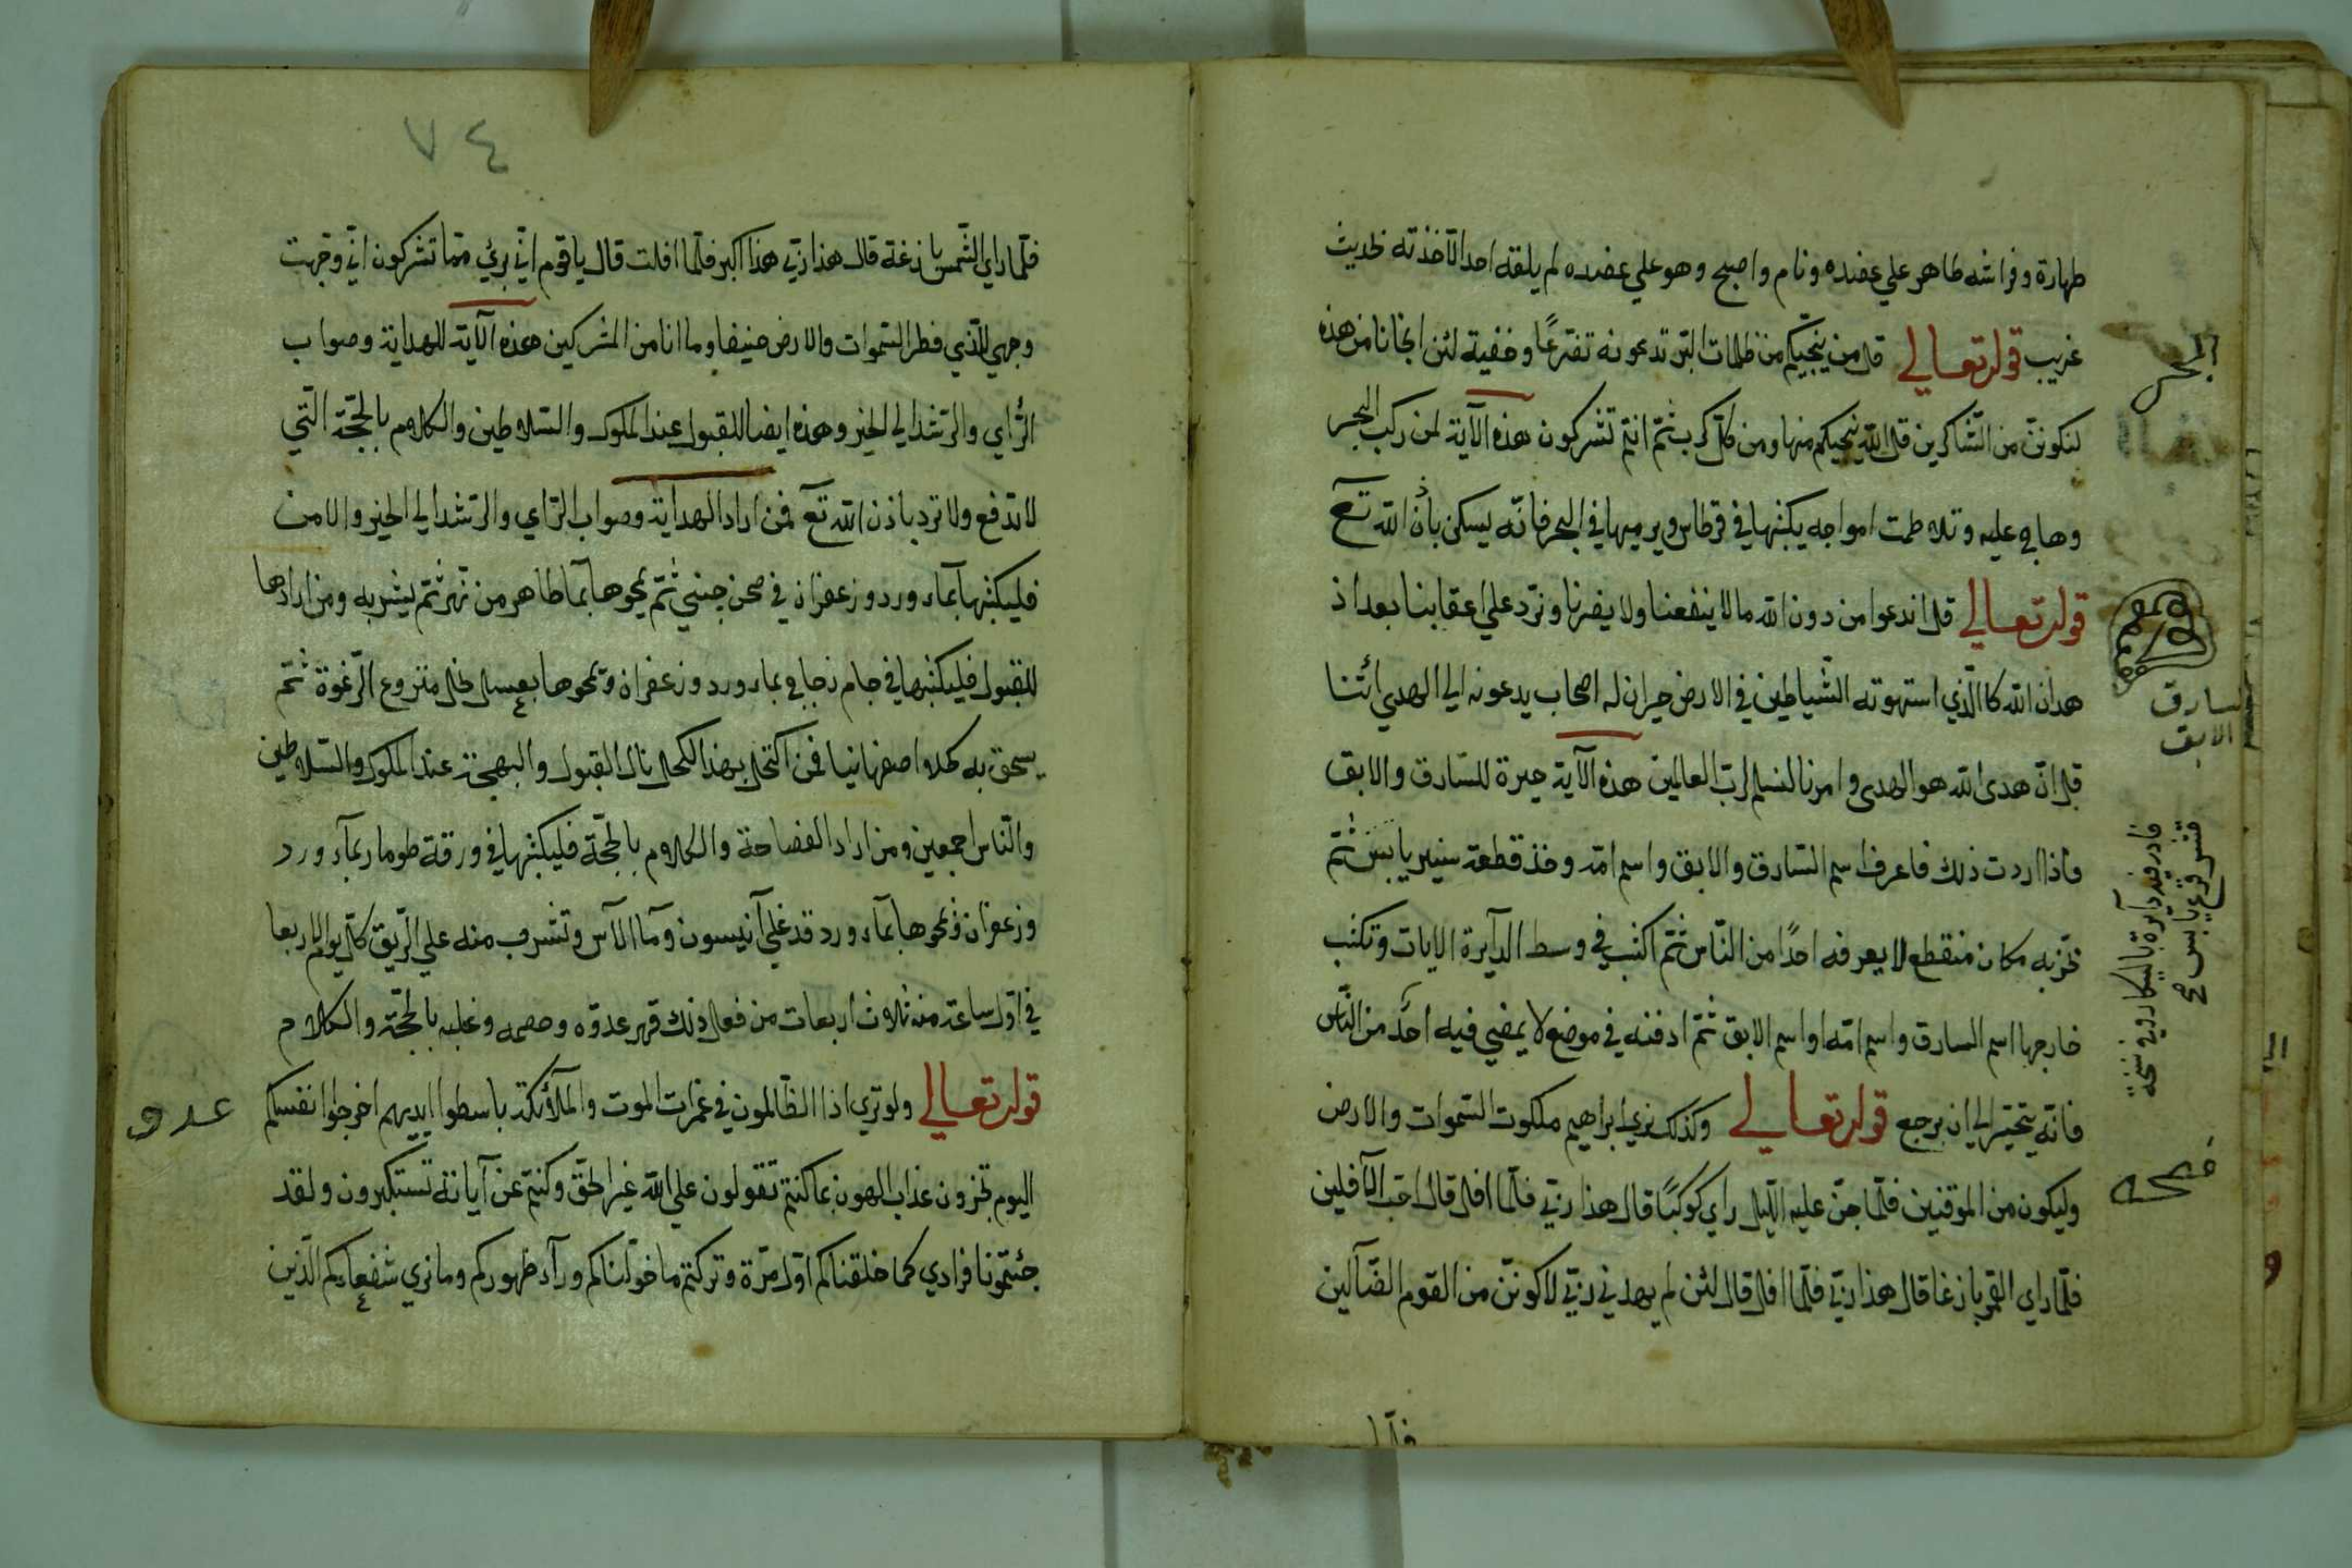 طهارة وفراشه طاهر علي عضده ونام واصبح وهو علي عضده لم يلقه احد الا خذته لحديث
غريب قوله تعالي قل من ينجيكم من ظلمات البر تدعونه تضرعًا وخفية لئن انجانا من هذه
لنكونن من الشاكرين قل الله ينجيكم منها ومن كل كرب ثم انتم تشركون هذه الآية لمن ركب البحر
وهاج عليه وتلاطمت امواجه يكتبها في قرطاس ويرميها في البحر فانه يسكن باذن الله تع
قوله تعالي قل اندعوا من دون الله مالا ينفعنا ولا يضرنا ونرد علي اعقابنا بعد اذ
هدان الله كا الذي استهوته الشياطين في الارض حيران له اصحاب يدعونه الي الهدي ائتنا
قل ان هدى الله هو الهدى وامرنا لنسلم لرب العالمين هذه الآية حيرة للسارق والابق
فاذا اردت ذلك فاعرف اسم السارق والابق واسم امه وخذ قطعة يابس ثم
مكان منقطع لا يعرفه احدًا من الناس ثم اكتب في وسط الدآيرة الايات وتكتب
خارجها اسم السارق واسم امه او اسم الابق ثم ادفنه في موضع لا يمضي فيه احد من الناس
فانه يتحير الي ان يرجع قوله تعالي وكذلك نري ابراهيم ملكوت السموات والارض
وليكون من الموقنين فلما جن عليه الليل راي كوكبًا قال هذا ربي فلما افل قال لا احب الآفلين
فلما راي القمر بازغا قال هذا ربي فلما افل قال لئن لم يهدني ربي لاكونن من القوم الضآلين
فلما
البحر
السارق
الابق
قشر قرع يابس صح
فادر فيه دآيرة بالبيكار وفي نسخة
٨٤
فلما راي الشمس بازغة قال هذا ربي هذا اكبر فلما افلت قال يا قوم اني بريء مما تشركون اني وجهت
وجهي للذي فطر السموات والارض حنيفا وما انا من المشركين هذه الآية للهداية وصواب
الرأي والرشد الي الخير وهذه ايضا للقبول عند الملوك والسلاطين والكلام بالحجة التي
لا تدفع ولا ترد باذن الله تع فمن اراد الهداية وصواب الراي والرشد الي الخير والامن
فليكتبها بمآء ورد وزعفران في صحن صيني ثم يمحوها بما طاهر من نهر ثم يشربه ومن ارادها
للقبول فليكتبها في جام زجاج بماء ورد وزعفران ويمحوها بعسل نحل منزوع الرغوة ثم
يسحق به كحلا اصفهانيا فمن اكتحل بهذا الكحل نال القبول والبهجة عند الملوك والسلاطين
والناس اجمعين ومن اراد الفصاحة والكلام بالحجة فليكتبها في ورقة طومار بمآء ورد
وزعفران ويمحوها بمآء ورد قد غلي آنيسون ومآ الآس وتشرب منه علي الريق كل يوم الاربعا
في اول ساعة منه ثلاث اربعات من فعل ذلك قهر عدوه وخصمه وغلبه بالحجة والكلام
قوله تعالي ولو تري اذا الظالمون في غمرات الموت والملآئكة باسطوا ايديهم اخرجوا انفسكم
اليوم تجزون عذاب الهون بما كنتم تقولون علي الله غير الحق وكنتم عن آياته تستكبرون ولقد
جئتمونا فرادي كما خلقناكم اول مرة وتركتم ما خولناكم ورآء ظهوركم وما نري شفعاءكم الذين
عدو